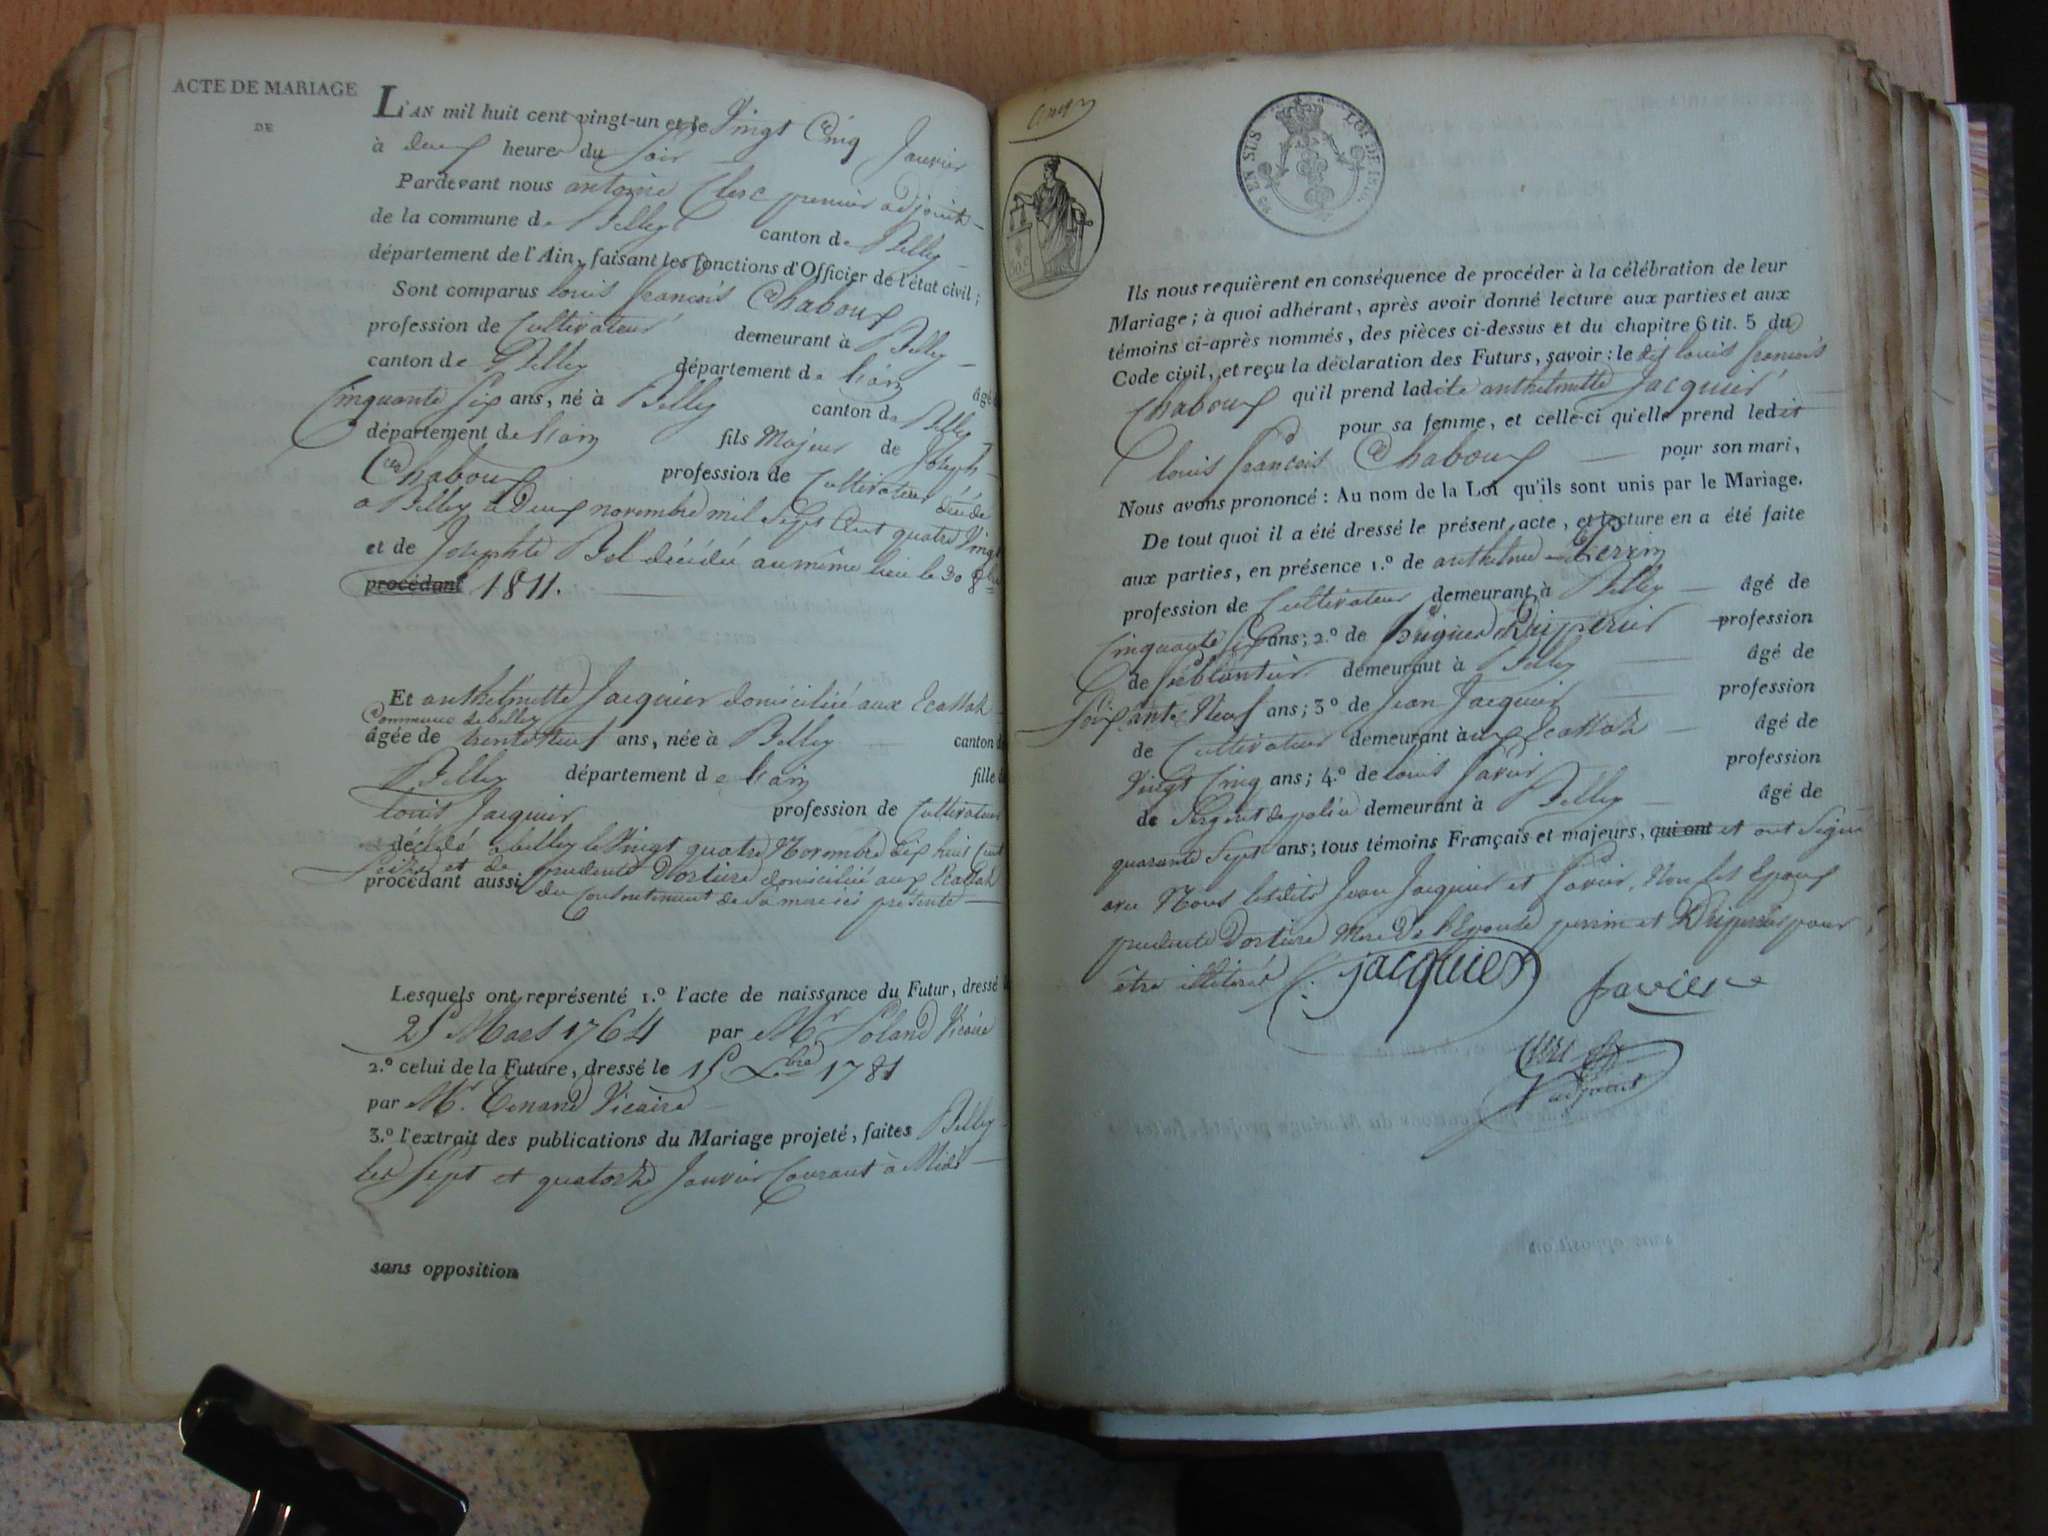 ACTE DE MARIAGE
DE
L'AN mil huit cent vingt-un et le Vingt Cinq Janvier
à deux heures du Soir
Pardevant nous antoine Clerc premier adjoint
de la commune de Belley canton de Belley
département de l'Ain, faisant les fonctions d'Officier de l'état civil;
Sont comparus louis françois Chaboux
profession de Cultivateur demeurant à Belley
canton de Belley département de l'ain âgé
Cinquante Six ans, né à Belley canton de Belley
département de l'ain fils Majeur de Joseph
Chaboux profession de Cultivateur décédé
a Belley le deux novembre mil Sept Cent quatre Vingt
et de Josephte Bel décédée au même lieu le 30 8bre
procédant 1811.
Et anthelmette Jacquier domiciliée aux Ecassah
Commune de belley
âgée de trente neuf ans, née à Belley canton de
Belley département de l'ain fille de
louis Jacquier profession de Cultivateur
décédé a belley le Vingt quatre Novembre dix huit Cent
Seize et de prudente Dorture domiciliée aux Ecassah
procédant aussi du Consentement de Sa mère ici présente
Lesquels ont représenté 1.º l'acte de naissance du Futur, dressé
25 Mars 1764 par Mr Poland Vicaire
2.º celui de la Future, dressé le 15 Xbre 1781
par Mr. Tenand Vicaire
3.º l'extrait des publications du Mariage projeté, faites Belley
les Sept et quatorze Janvier Courant à Midi
sans opposition
EN SUS LOI DE
50. C
Ils nous requièrent en conséquence de procéder à la célébration de leur
Mariage; à quoi adhérant, après avoir donné lecture aux parties et aux
témoins ci-après nommés, des pièces ci-dessus et du chapitre 6 tit. 5 du
Code civil, et reçu la déclaration des Futurs, savoir: le dit louis françois
Chaboux qu'il prend ladite anthelmette Jacquier
pour sa femme, et celle-ci qu'elle prend ledit
louis françois Chaboux pour son mari,
Nous avons prononcé: Au nom de la Loi qu'ils sont unis par le Mariage.
De tout quoi il a été dressé le présent acte, et lecture en a été faite
aux parties, en présence 1.º de anthelme Perrin
profession de Cultivateur demeurant à Belley âgé de
Cinquante Six ans; 2.º de profession
de ferblantier demeurant à Belley âgé de
Soixante Neuf ans; 3º de Jean Jacquier profession
de Cultivateur demeurant aux Ecassah âgé de
Vingt Cinq ans; 4.º de louis Savier profession
de Sergent de police demeurant à Belley âgé de
quarante Sept ans; tous témoins Français et majeurs, qui ont et ont Signé
avec Nous lesdits Jean Jacquier et Savier, Non les Epoux
prudente Dorture Mère de l'Epouse perrin et pour
être illitérés
jacquier Savier
Clerc
adjoint